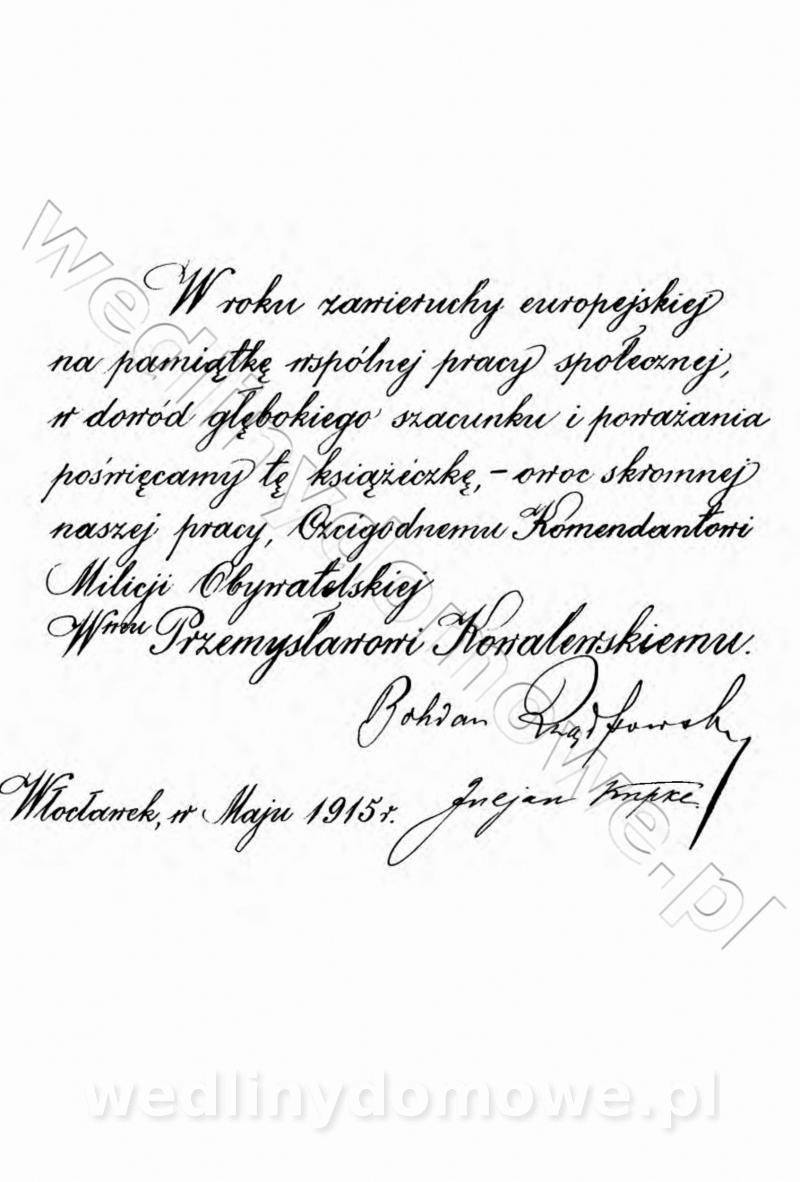 W roku zawieruchy europejskiej
na pamiątkę wspólnej pracy społecznej,
w dowód głębokiego szacunku i poważania
poświęcamy tę książéczkę, – owoc skromnej
naszej pracy, Czcigodnemu Komendantowi
Milicji Obywatelskiej
Wnmu Przemysławowi Kowalewskiemu.
Bohdan
Włocławek, w Maju 1915 r.
wedlinydomowe.pl
wedlinydomowe.pl